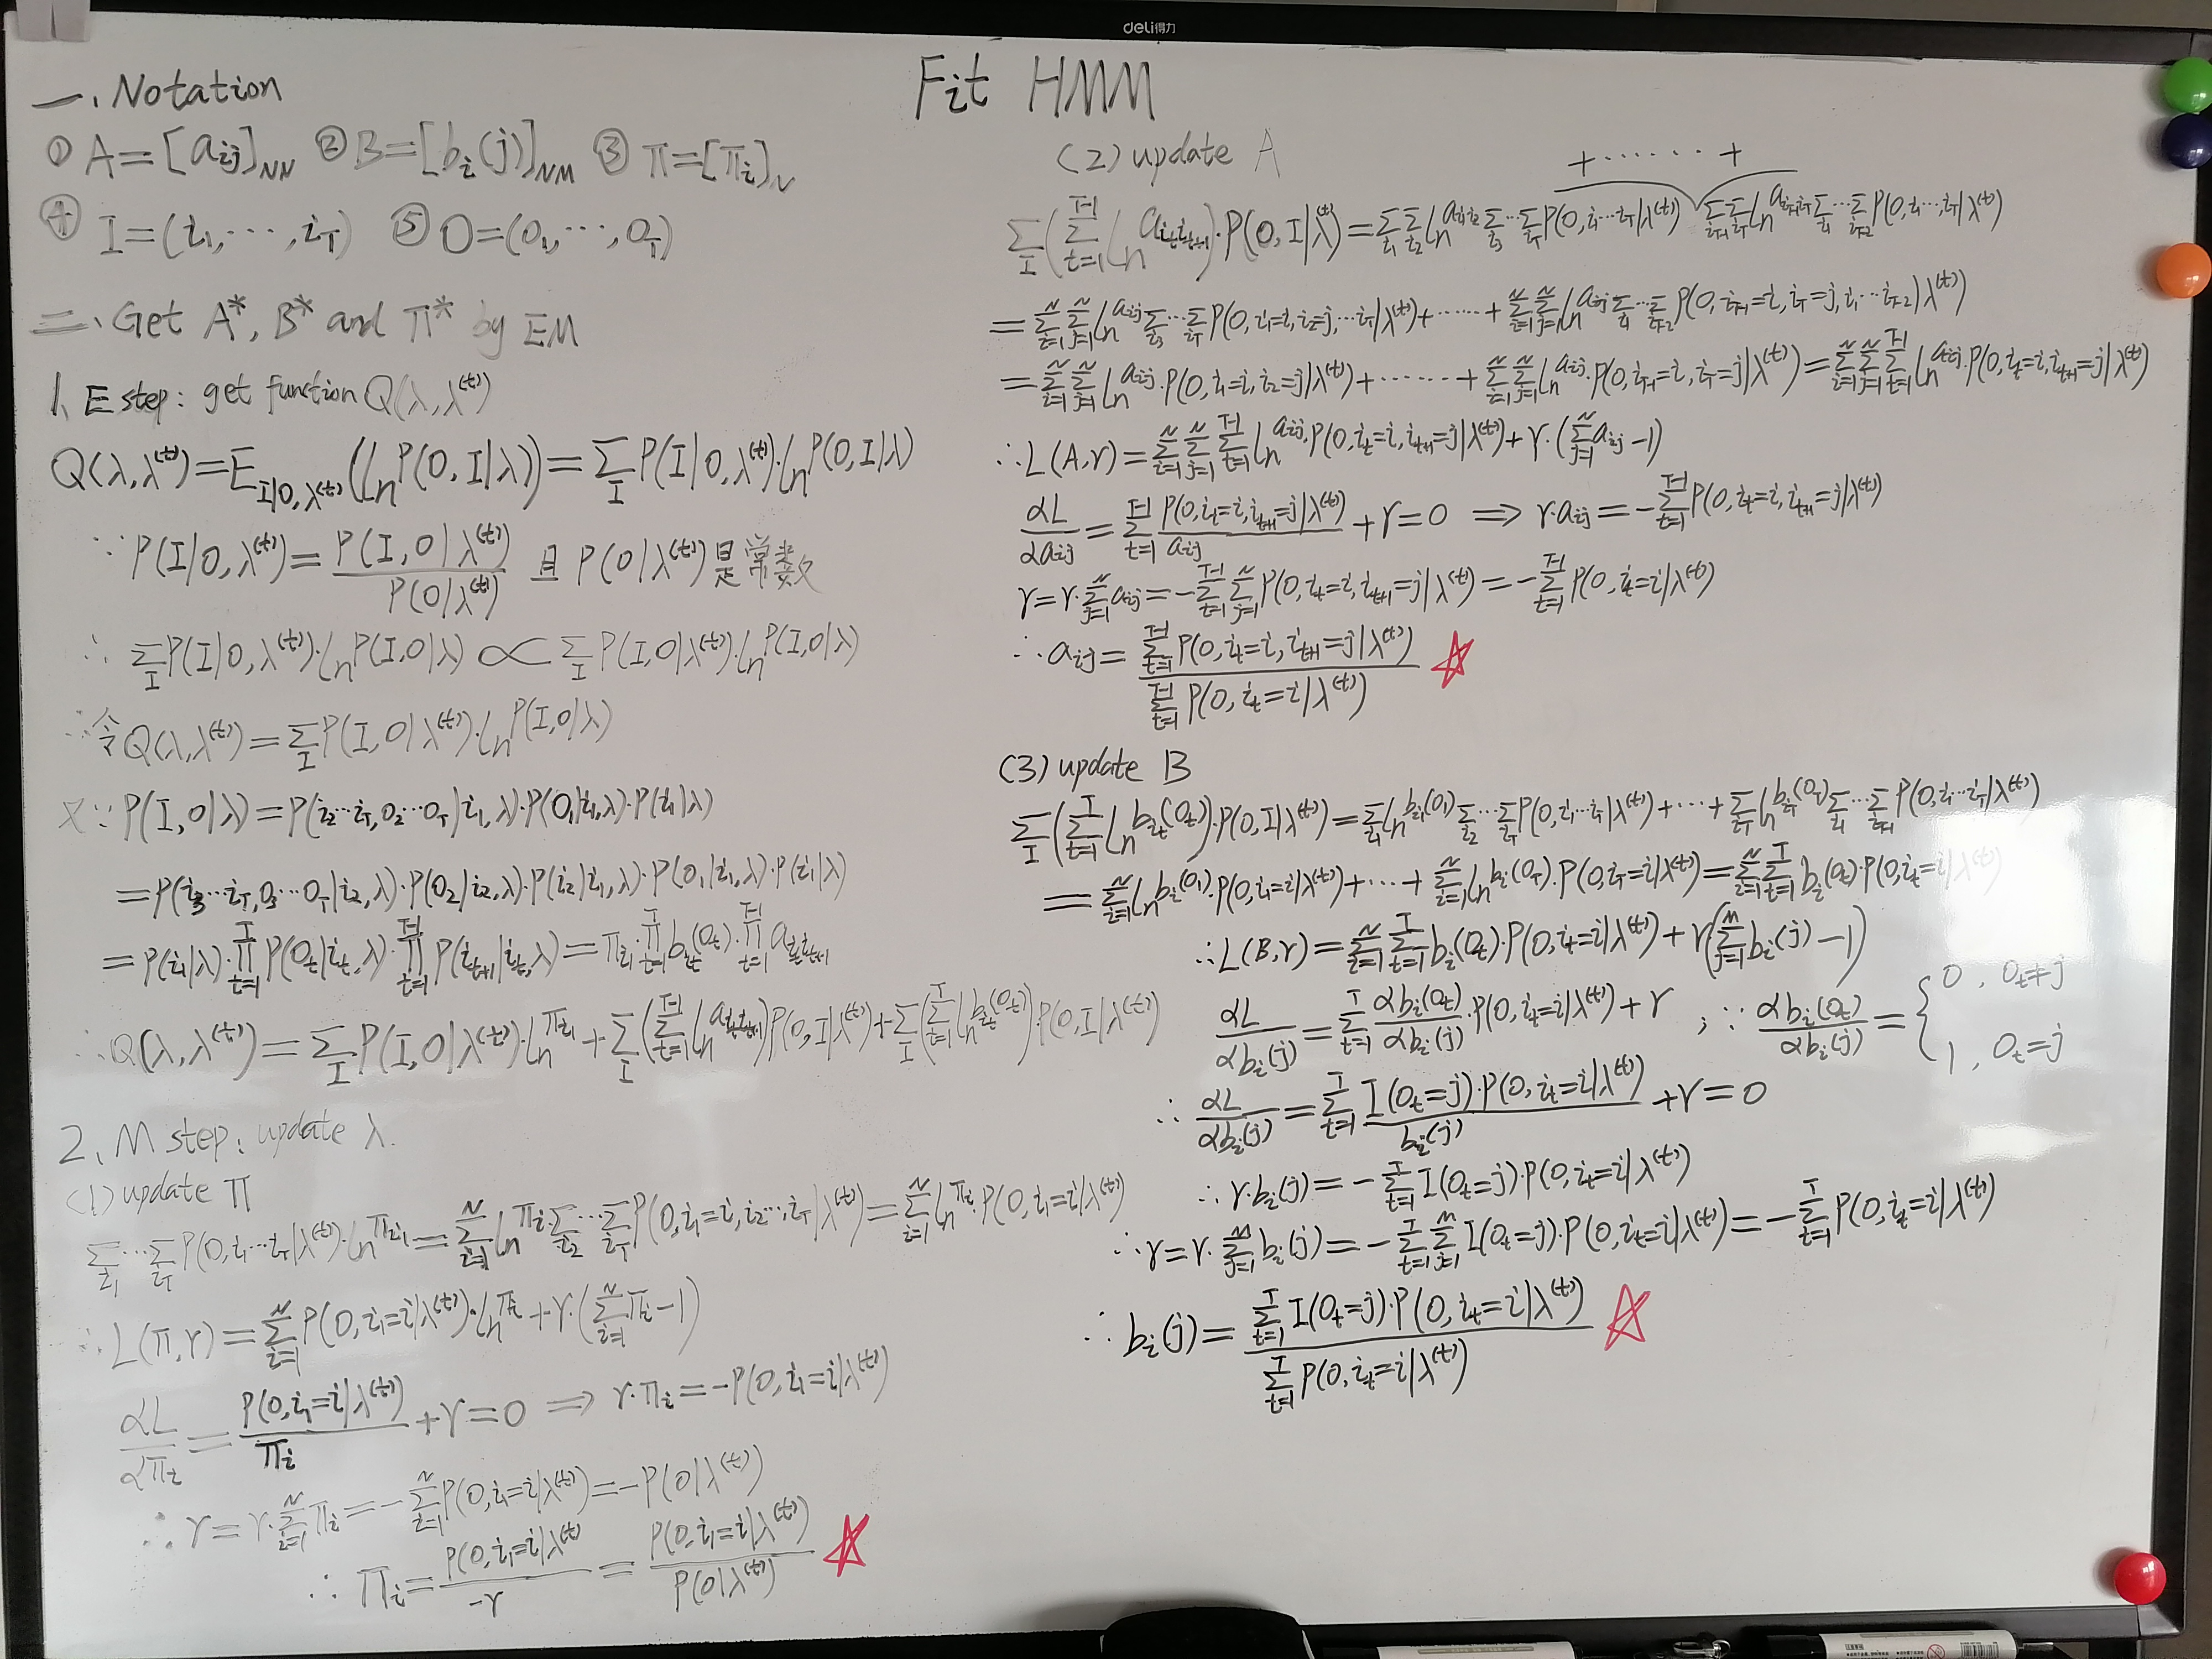 deli得力
Fit HMM
一、Notation
① A=[a_ij]_NN ② B=[b_i(j)]_NM ③ π=[π_i]_N
④ I=(i_1,…,i_T) ⑤ O=(o_1,…,o_T)
二、Get A*, B* and π* by EM
1、E step: get function Q(λ,λ^(t))
Q(λ,λ^(t))=E_{I|O,λ^(t)}(ln P(O,I|λ))=∑_I P(I|O,λ^(t))·ln P(O,I|λ)
∵ P(I|O,λ^(t))=P(I,O|λ^(t))/P(O|λ^(t)) 且 P(O|λ^(t))是常数
∴ ∑_I P(I|O,λ^(t))·ln P(I,O|λ) ∝ ∑_I P(I,O|λ^(t))·ln P(I,O|λ)
∴ 令Q(λ,λ^(t))=∑_I P(I,O|λ^(t))·ln P(I,O|λ)
又∵ P(I,O|λ)=P(i_2…i_T,o_2…o_T|i_1,λ)·P(o_1|i_1,λ)·P(i_1|λ)
=P(i_3…i_T,o_3…o_T|i_2,λ)·P(o_2|i_2,λ)·P(i_2|i_1,λ)·P(o_1|i_1,λ)·P(i_1|λ)
=P(i_1|λ)·∏_{t=1}^{T}P(o_t|i_t,λ)·∏_{t=1}^{T-1}P(i_{t+1}|i_t,λ)=π_{i_1}·∏_{t=1}^{T}b_{i_t}(o_t)·∏_{t=1}^{T-1}a_{i_t i_{t+1}}
∴Q(λ,λ^(t))=∑_I P(I,O|λ^(t))·ln π_{i_1}+∑_I(∑_{t=1}^{T-1}ln a_{i_t i_{t+1}})P(O,I|λ^(t))+∑_I(∑_{t=1}^{T}ln b_{i_t}(o_t))·P(O,I|λ^(t))
2、M step: update λ.
(1) update π
∑_{i_1}…∑_{i_T}P(O,i_1…i_T|λ^(t))·ln π_{i_1}=∑_{i=1}^{N}ln π_i·∑_{i_2}…∑_{i_T}P(O,i_1=i,i_2…,i_T|λ^(t))=∑_{i=1}^{N}ln π_i·P(O,i_1=i|λ^(t))
∴L(π,γ)=∑_{i=1}^{N}P(O,i_1=i|λ^(t))·ln π_i+γ·(∑_{i=1}^{N}π_i-1)
αL/απ_i=P(O,i_1=i|λ^(t))/π_i+γ=0 ⟹ γ·π_i=-P(O,i_1=i|λ^(t))
∴ γ=γ·∑_{i=1}^{N}π_i=-∑_{i=1}^{N}P(O,i_1=i|λ^(t))=-P(O|λ^(t))
∴ π_i=P(O,i_1=i|λ^(t))/-γ=P(O,i_1=i|λ^(t))/P(O|λ^(t)) ☆
(2) update A
+……+
∑_I(∑_{t=1}^{T-1}ln a_{i_t i_{t+1}})·P(O,I|λ^(t))=∑_{i_1}∑_{i_2}ln a_{i_1 i_2}∑_{i_3}…∑_{i_T}P(O,i_1…i_T|λ^(t)) ∑_{i_{T-1}}∑_{i_T}ln a_{i_{T-1} i_T}∑_{i_1}…∑_{i_{T-2}}P(O,i_1…,i_T|λ^(t))
=∑_{i=1}^{N}∑_{j=1}^{N}ln a_ij∑_{i_3}…∑_{i_T}P(O,i_1=i,i_2=j,…i_T|λ^(t))+……+∑_{i=1}^{N}∑_{j=1}^{N}ln a_ij∑_{i_1}…∑_{i_{T-2}}P(O,i_{T-1}=i,i_T=j,i_1…i_{T-2}|λ^(t))
=∑_{i=1}^{N}∑_{j=1}^{N}ln a_ij·P(O,i_1=i,i_2=j|λ^(t))+……+∑_{i=1}^{N}∑_{j=1}^{N}ln a_ij·P(O,i_{T-1}=i,i_T=j|λ^(t))=∑_{i=1}^{N}∑_{j=1}^{N}∑_{t=1}^{T-1}ln a_ij·P(O,i_t=i,i_{t+1}=j|λ^(t))
∴L(A,γ)=∑_{i=1}^{N}∑_{j=1}^{N}∑_{t=1}^{T-1}ln a_ij·P(O,i_t=i,i_{t+1}=j|λ^(t))+γ·(∑_{j=1}^{N}a_ij-1)
αL/αa_ij=∑_{t=1}^{T-1}P(O,i_t=i,i_{t+1}=j|λ^(t))/a_ij+γ=0 ⟹ γ·a_ij=-∑_{t=1}^{T-1}P(O,i_t=i,i_{t+1}=j|λ^(t))
γ=γ·∑_{j=1}^{N}a_ij=-∑_{t=1}^{T-1}∑_{j=1}^{N}P(O,i_t=i,i_{t+1}=j|λ^(t))=-∑_{t=1}^{T-1}P(O,i_t=i|λ^(t))
∴ a_ij=∑_{t=1}^{T-1}P(O,i_t=i,i_{t+1}=j|λ^(t))/∑_{t=1}^{T-1}P(O,i_t=i|λ^(t)) ☆
(3) update B
∑_I(∑_{t=1}^{T}ln b_{i_t}(o_t))·P(O,I|λ^(t))=∑_{i_1}ln b_{i_1}(o_1)∑_{i_2}…∑_{i_T}P(O,i_1…i_T|λ^(t))+…+∑_{i_T}ln b_{i_T}(o_T)∑_{i_1}…∑_{i_{T-1}}P(O,i_1…i_T|λ^(t))
=∑_{i=1}^{N}ln b_i(o_1)·P(O,i_1=i|λ^(t))+…+∑_{i=1}^{N}ln b_i(o_T)·P(O,i_T=i|λ^(t))=∑_{i=1}^{N}∑_{t=1}^{T}b_i(o_t)·P(O,i_t=i|λ^(t))
∴L(B,γ)=∑_{i=1}^{N}∑_{t=1}^{T}b_i(o_t)·P(O,i_t=i|λ^(t))+γ(∑_{j=1}^{M}b_i(j)-1)
αL/αb_i(j)=∑_{t=1}^{T}αb_i(o_t)/αb_i(j)·P(O,i_t=i|λ^(t))+γ ; ∵ αb_i(o_t)/αb_i(j)={0, o_t≠j
1, o_t=j
∴ αL/αb_i(j)=∑_{t=1}^{T}I(o_t=j)·P(O,i_t=i|λ^(t))/b_i(j)+γ=0
∴γ·b_i(j)=-∑_{t=1}^{T}I(o_t=j)·P(O,i_t=i|λ^(t))
∴γ=γ·∑_{j=1}^{M}b_i(j)=-∑_{t=1}^{T}∑_{j=1}^{M}I(o_t=j)·P(O,i_t=i|λ^(t))=-∑_{t=1}^{T}P(O,i_t=i|λ^(t))
∴ b_i(j)=∑_{t=1}^{T}I(o_t=j)·P(O,i_t=i|λ^(t))/∑_{t=1}^{T}P(O,i_t=i|λ^(t)) ☆